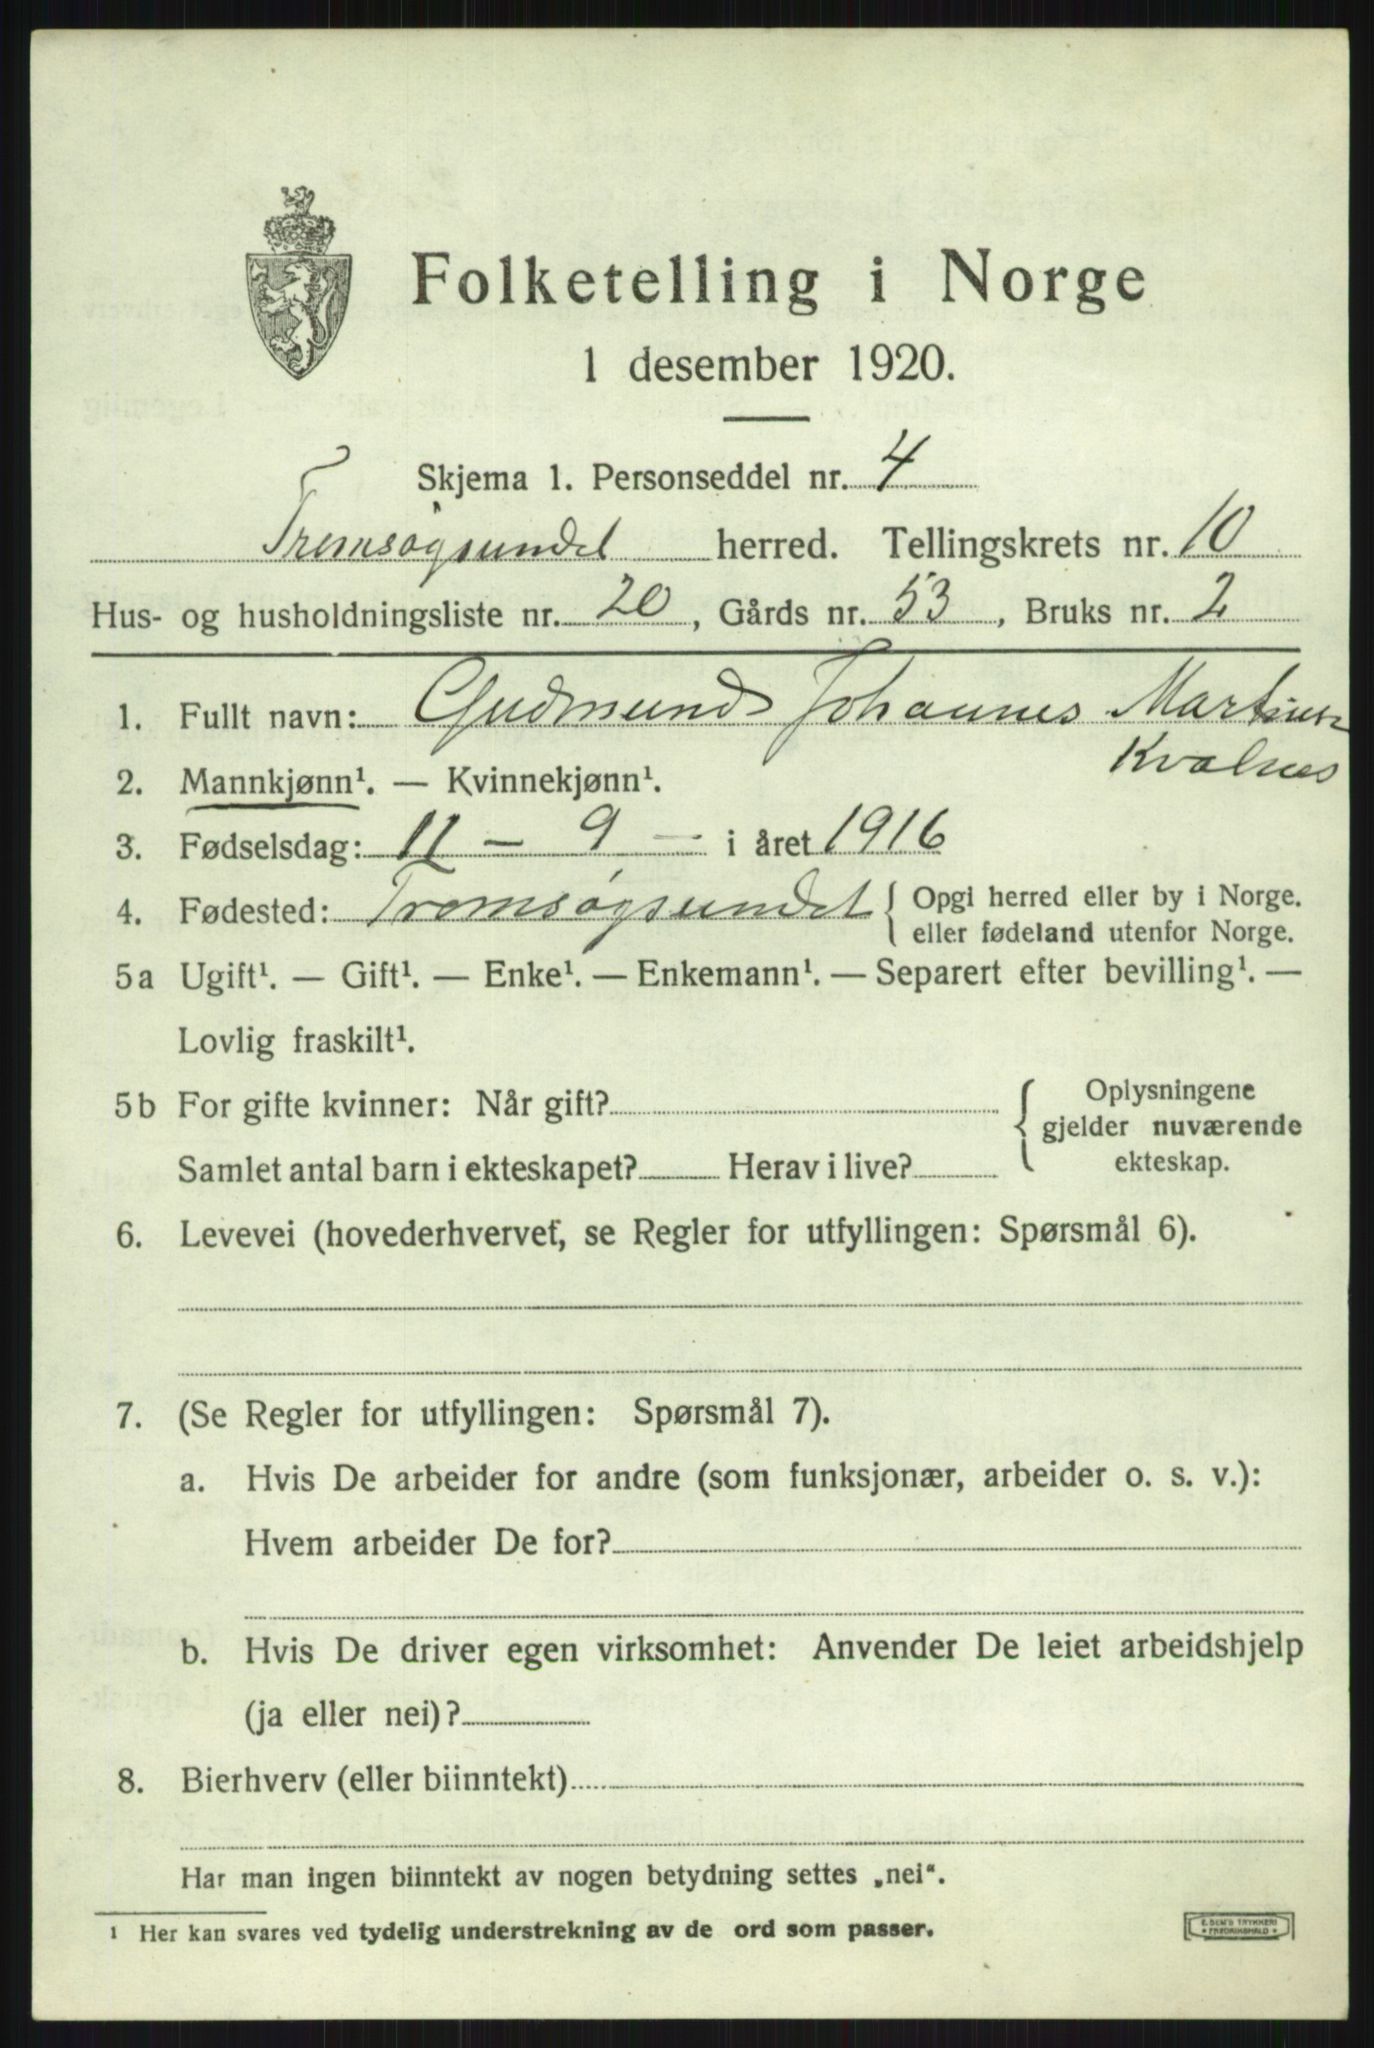 Folketelling i Norge
1 desember 1920.
Skjema 1. Personseddel nr. 4
Tromsøysundet herred. Tellingskrets nr. 10
Hus- og husholdningsliste nr. 20, Gårds nr. 53, Bruks nr. 2
1. Fullt navn: Gudmund Johannes Martinus
Kvalnes
2. Mannkjønn¹. — Kvinnekjønn¹.
3. Fødselsdag: 11 - 9 - i året 1916
4. Fødested: Tromsøysundet { Opgi herred eller by i Norge.
eller fødeland utenfor Norge.
5a Ugift¹. — Gift¹. — Enke¹. — Enkemann¹. — Separert efter bevilling¹. —
Lovlig fraskilt¹.
5b For gifte kvinner: Når gift? { Oplysningene
gjelder nuværende
ekteskap.
Samlet antal barn i ekteskapet? Herav i live?
6. Levevei (hovederhvervet, se Regler for utfyllingen: Spørsmål 6).
7. (Se Regler for utfyllingen: Spørsmål 7).
a. Hvis De arbeider for andre (som funksjonær, arbeider o. s. v.):
Hvem arbeider De for?
b. Hvis De driver egen virksomhet: Anvender De leiet arbeidshjelp
(ja eller nei)?
8. Bierhverv (eller biinntekt)
Har man ingen biinntekt av nogen betydning settes „nei“.
¹ Her kan svares ved tydelig understrekning av de ord som passer.
E. SEM'S TRYKKERI
FREDRIKSHALD